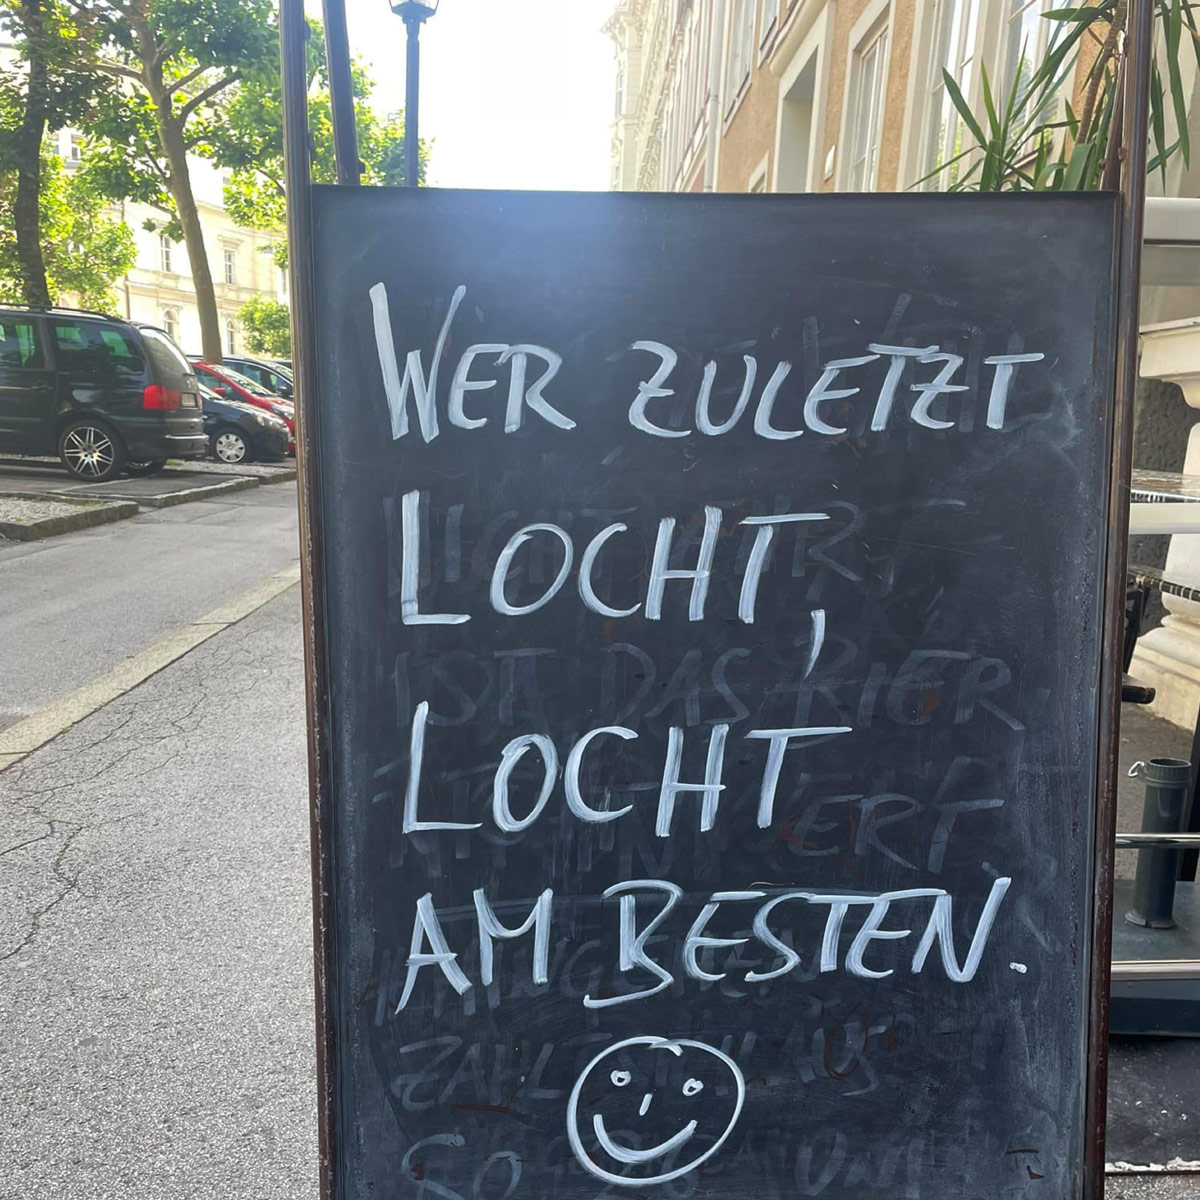 WER ZULETZT
LOCHT,
LOCHT,
AM BESTEN.